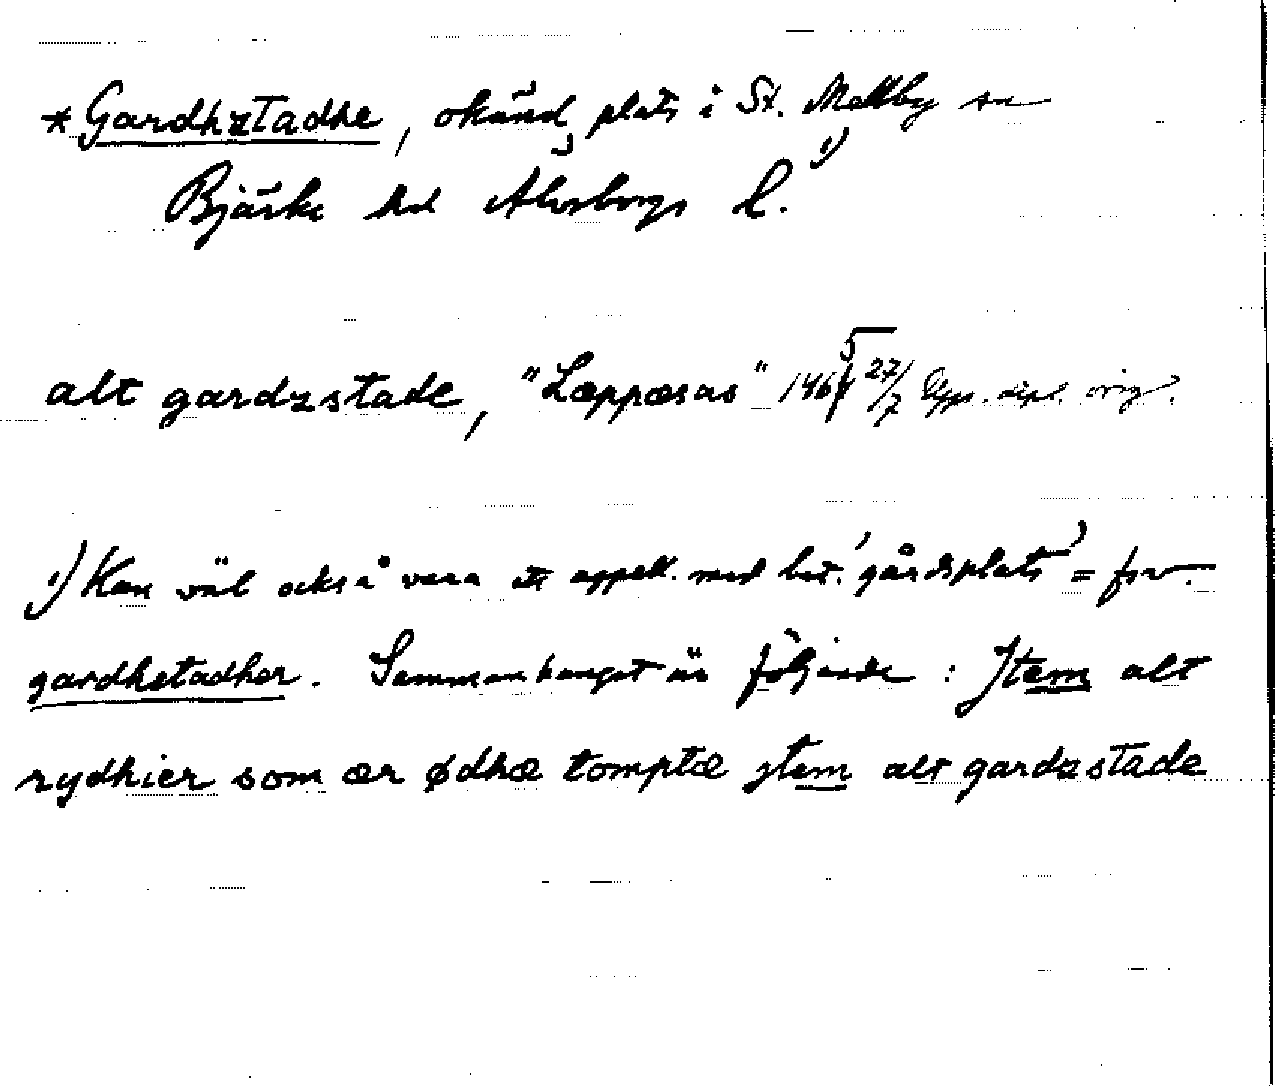 *Gardhzstadhe, okänd plats i St. Mellby sn
Bjärke hd Älvsborgs l. 1)
alt gardzstade, "Læppæsas" 1465 27/7 Upps. dipl. orig.
1) Kan väl också vara ett appell. med bet. 'gårdsplats' = fsv.
gardhstadher. Sammanhanget är följande : Jtem alt
rydhier som ær ødhæ tomptæ jtem alt gardzstade